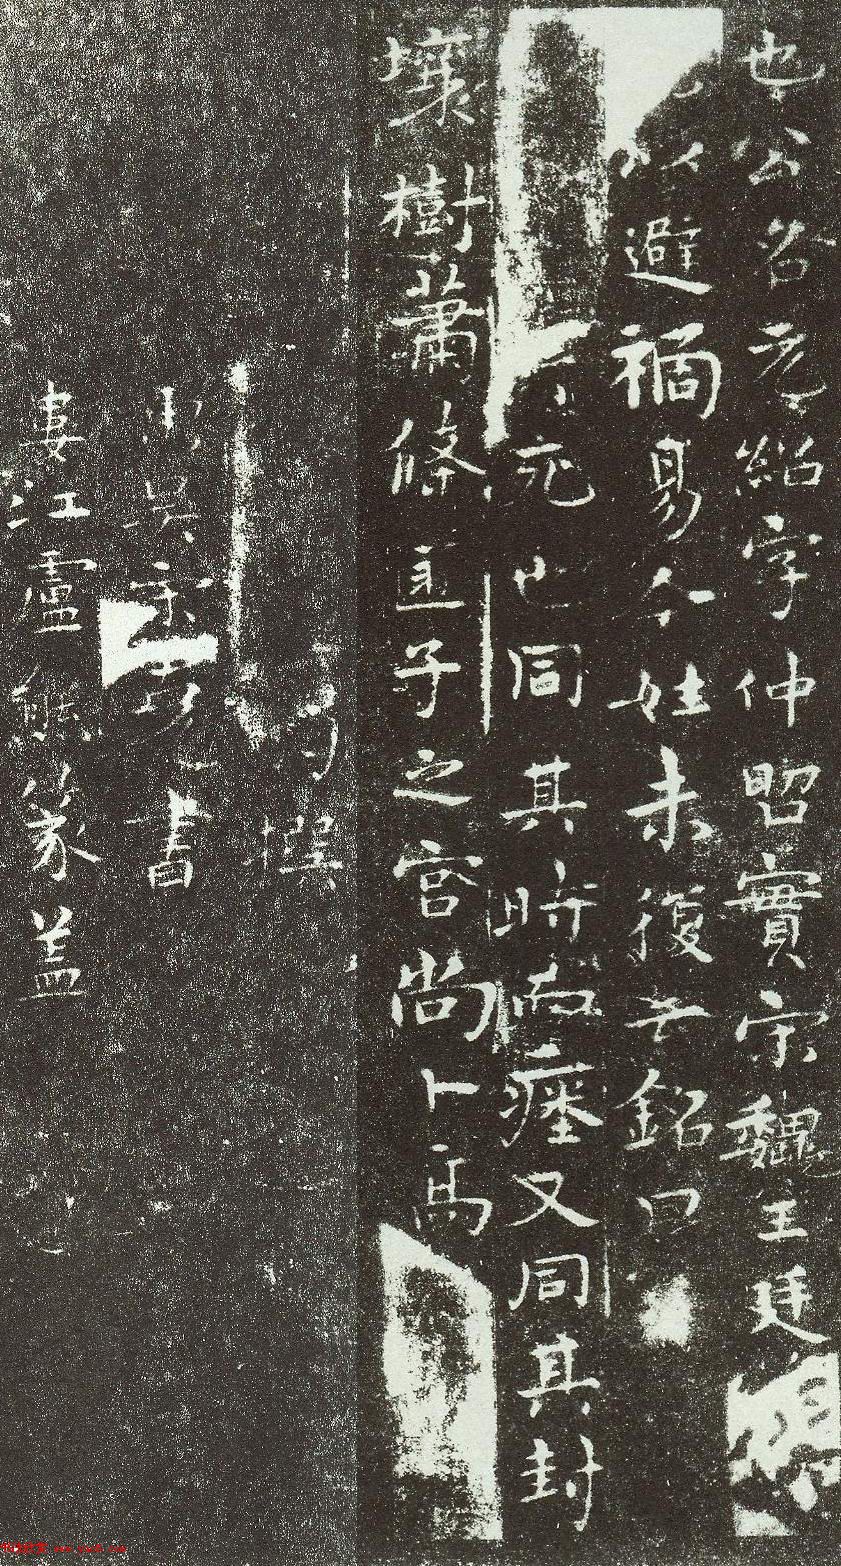 也公名元紹字仲昭實宋魏王廷
以避禍易今姓未復云銘曰
死也同其時而瘞又同其封
壤樹蕭條匪子之宮尚卜高
撰
吳宋書
婁江盧熊篆蓋